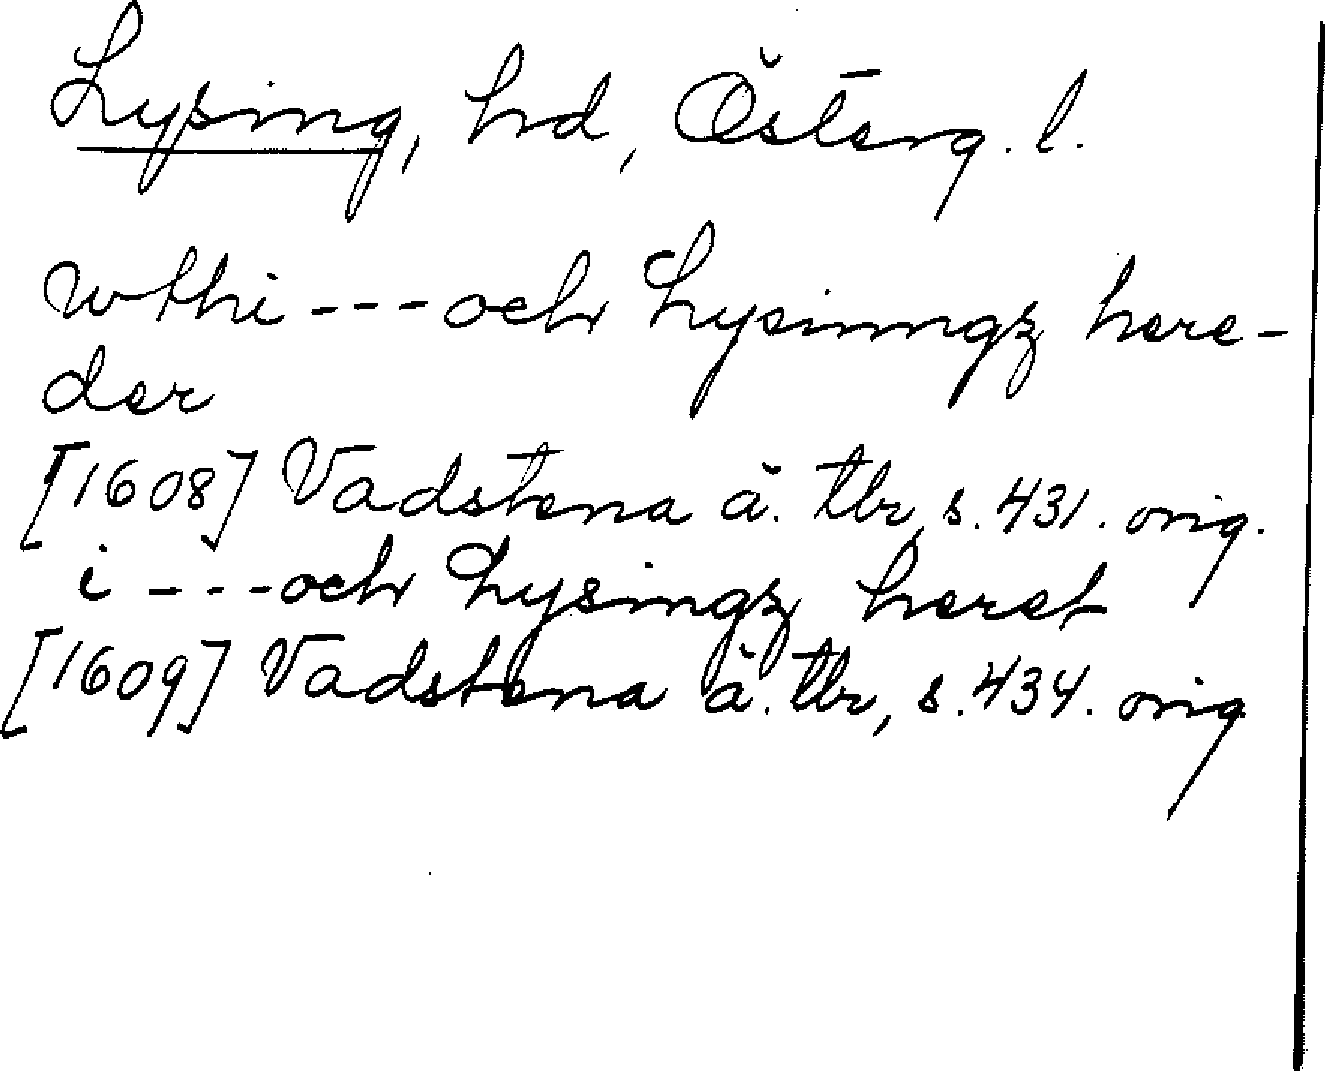 Lysing, hd, Österg. l.
wthi --- och Lysinngz here-
der
[1608] Vadstena ä. tbr, s. 431. orig.
i --- och Lysingz heret
[1609] Vadstena ä. tbr, s. 434. orig